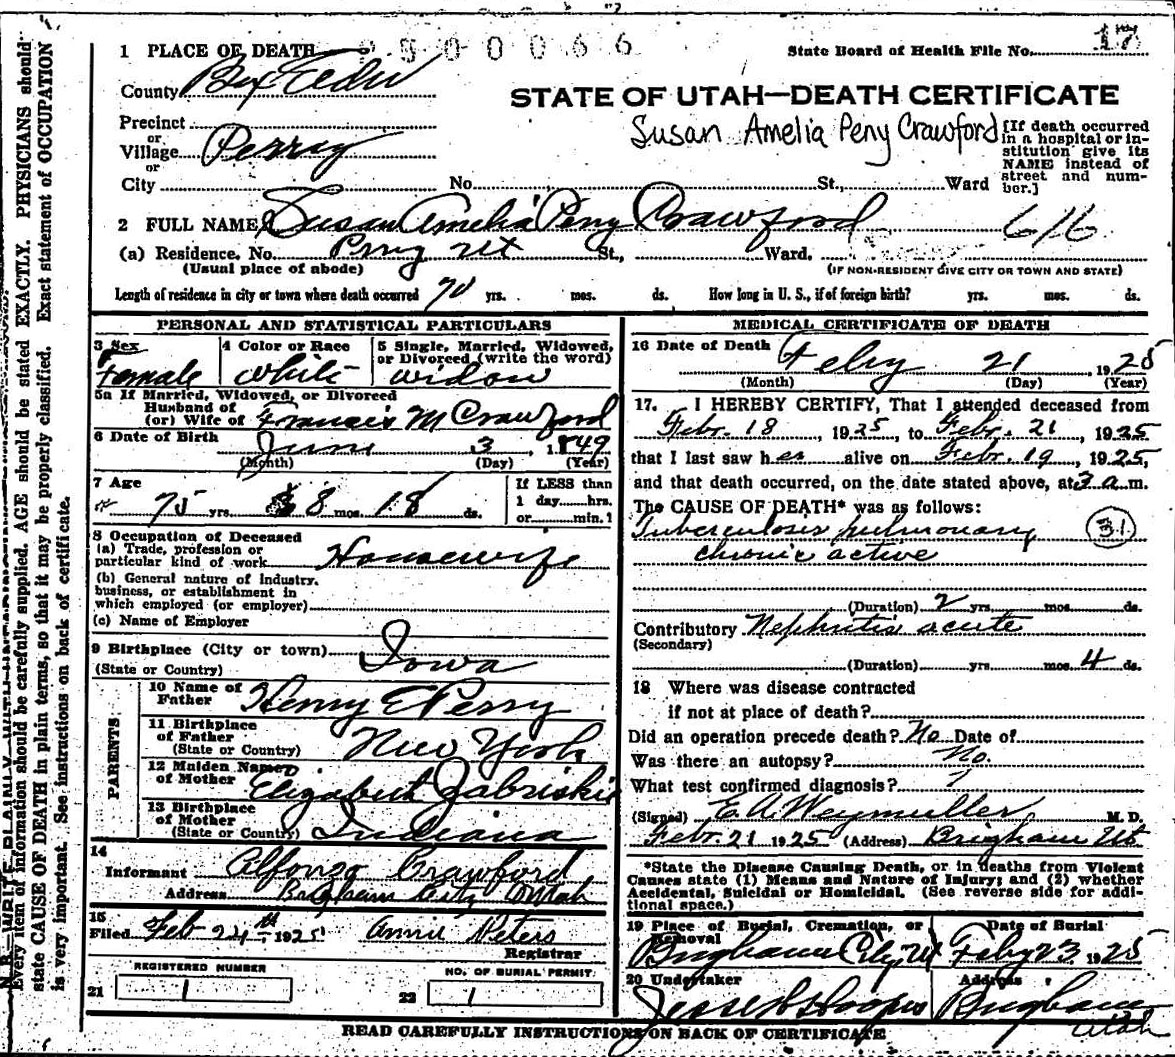 1 PLACE OF DEATH 2500066 State Board of Health File No. 17
County Box Elder
STATE OF UTAH—DEATH CERTIFICATE
Susan Amelia Peny Crawford
Precinct
or
Village Perry
or
City No. St., Ward
[If death occurred in a hospital or in-
stitution give its
NAME instead of
street and num-
ber.]
2 FULL NAME Susan Amelia Peny Crawford 616
(a) Residence. No. Perry Ut St., Ward.
(Usual place of abode) (IF NON-RESIDENT GIVE CITY OR TOWN AND STATE)
Length of residence in city or town where death occurred 70 yrs. mos. ds. How long in U. S., if of foreign birth? yrs. mos. ds.
PERSONAL AND STATISTICAL PARTICULARS
3 Sex
Female
4 Color or Race
White
5 Single, Married, Widowed,
or Divorced (write the word)
widow
5a If Married, Widowed, or Divorced
Husband of
(or) Wife of Francis M Crawford
6 Date of Birth June 3, 1849
(Month) (Day) (Year)
7 Age
75 yrs. 8 mos. 18 ds.
If LESS than
1 day hrs.
or min.
8 Occupation of Deceased
(a) Trade, profession or
particular kind of work Housewife
(b) General nature of industry.
business, or establishment in
which employed (or employer)
(c) Name of Employer
9 Birthplace (City or town) Iowa
(State or Country)
PARENTS
10 Name of
Father Henry E Perry
11 Birthplace
of Father New York
(State or Country)
12 Maiden Name
of Mother Elizabeth Zabriskie
13 Birthplace
of Mother
(State or Country) Indiana
14
Informant Alfonzo Crawford
Address Brigham City Utah
15
Filed Feb 24th 1925 Annie Peters
Registrar
REGISTERED NUMBER
21 1
NO. OF BURIAL PERMIT
22 1
MEDICAL CERTIFICATE OF DEATH
16 Date of Death Feby 21, 1925
(Month) (Day) (Year)
17. I HEREBY CERTIFY, That I attended deceased from
Febr. 18, 1925, to Febr. 21, 1925
that I last saw her alive on Febr. 19, 1925,
and that death occurred, on the date stated above, at 3 a.m.
The CAUSE OF DEATH* was as follows:
Tuberculosis pulmonary 31
chronic active
(Duration) 2 yrs. mos. ds.
Contributory Nephritis acute
(Secondary)
(Duration) yrs. mos. 4 ds.
18 Where was disease contracted
if not at place of death?
Did an operation precede death? No Date of
Was there an autopsy? No.
What test confirmed diagnosis? ?
(Signed) E. A. Weymuller M. D.
Febr. 21 1925 (Address) Brigham Ut
*State the Disease Causing Death, or in deaths from Violent
Causes state (1) Means and Nature of Injury; and (2) whether
Accidental, Suicidal or Homicidal. (See reverse side for addi-
tional space.)
19 Place of Burial, Cremation, or
Removal
Brigham City Ut
Date of Burial
Feby 23 1925
20 Undertaker
Address
Brigham
Utah
READ CAREFULLY INSTRUCTIONS ON BACK OF CERTIFICATE
Every item of information should be carefully supplied. AGE should be stated EXACTLY. PHYSICIANS should
state CAUSE OF DEATH in plain terms, so that it may be properly classified. Exact statement of OCCUPATION
is very important. See instructions on back of certificate.